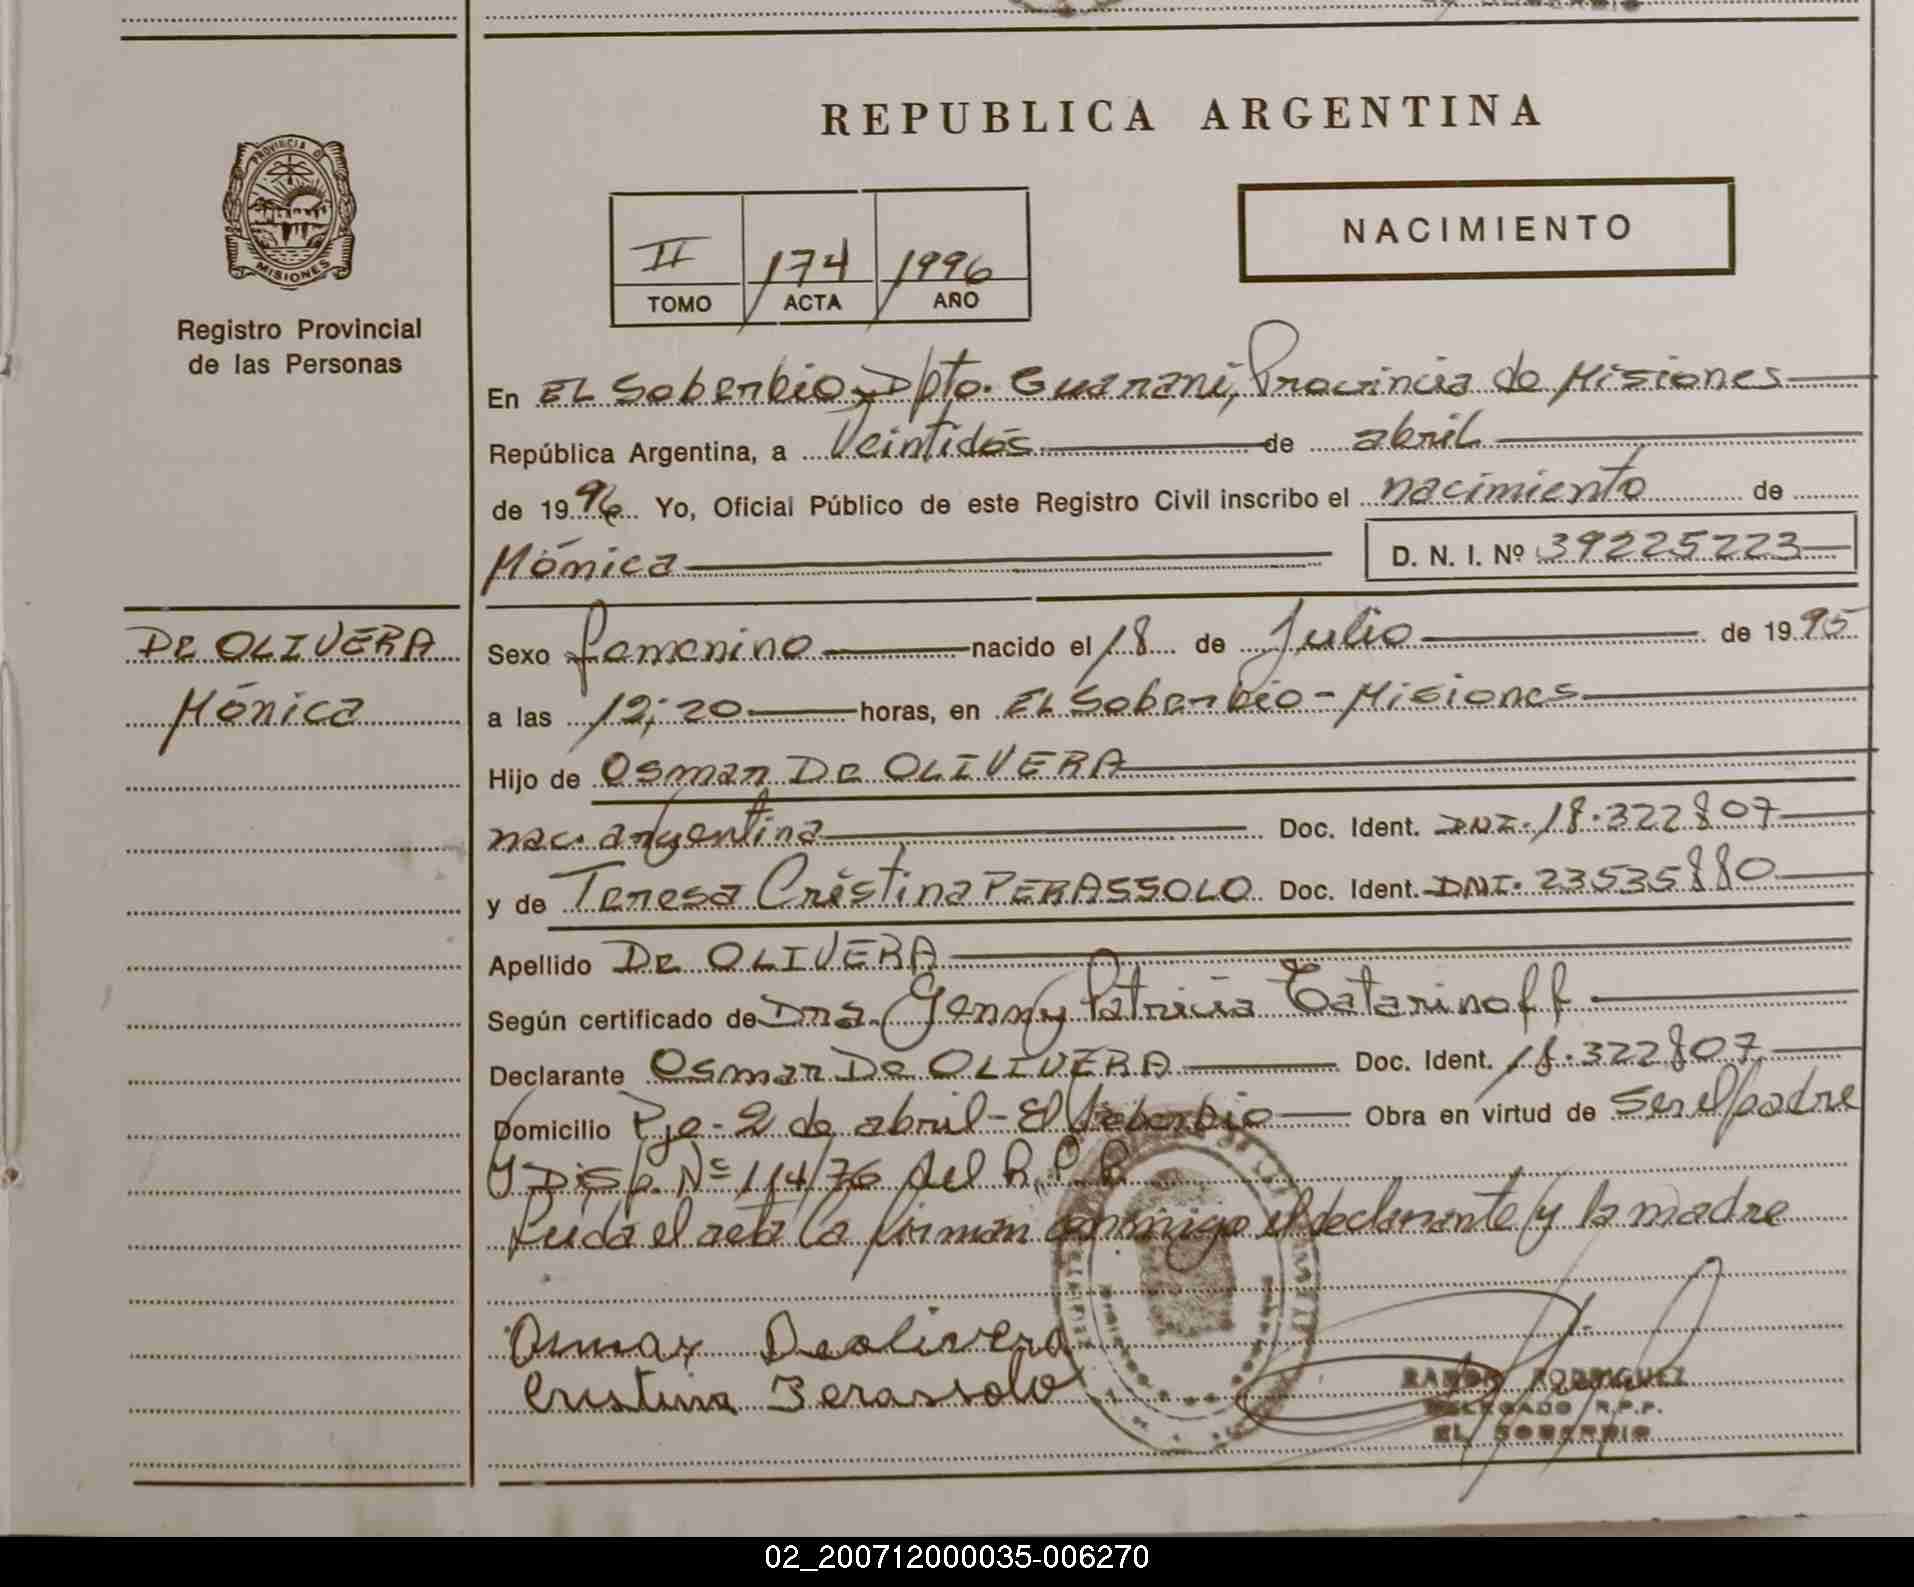 REPUBLICA ARGENTINA
PROVINCIA D
MISIONES
Registro Provincial
de las Personas
II 174 1996
TOMO ACTA AÑO
NACIMIENTO
En EL Soberbio, Dpto. Guarani, Provincia de Misiones
República Argentina, a Veintidós de abril
de 1996 Yo, Oficial Público de este Registro Civil inscribo el nacimiento de
Mónica D. N. I. Nº 39225223
DE OLIVERA
Mónica
Sexo femenino nacido el 18 de Julio de 1995
a las 12:20 horas, en EL Soberbio - Misiones
Hijo de Osmar De OLIVERA
nac. argentina Doc. Ident. DNI. 18.322807
y de Teresa Cristina PERASSOLO Doc. Ident. DNI. 23535880
Apellido De OLIVERA
Según certificado de Dra. Genny Patricia Tatarinoff
Declarante Osmar De OLIVERA Doc. Ident. 18.322807
Domicilio Pje. 2 de abril - El Soberbio Obra en virtud de Ser el padre
y Disp. Nº 114/76 del R.P.P.
Leida el acta la firman conmigo el declarante y la madre
Osmar Deolivera
Cristina Perassolo
RAMON RODRIGUEZ
DELEGADO R.P.P.
EL SOBERBIO
02_200712000035-006270